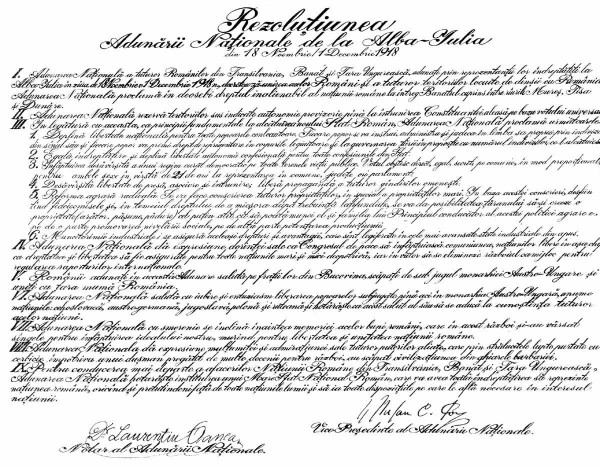 Rezoluțiunea
Adunării Naționale de la Alba-Iulia
din 18 Noembrie/1 Decembrie 1918
I. Adunarea Națională a tuturor Românilor din Transilvania, Banat și Țara Ungurească, adunați prin reprezentanții lor îndreptățiți la
Alba-Iulia în ziua de 18 Noembrie/1 Decembrie 1918, decretează unirea acelor Români și a tuturor teritoriilor locuite de dânșii cu România.
Adunarea Națională proclamă îndeosebi dreptul inalienabil al națiunii române la întreg Banatul cuprins între râurile Mureș, Tisa
și Dunăre.
II. Adunarea Națională rezervă teritoriilor sus indicate autonomie provizorie până la întrunirea Constituantei aleasă pe baza votului universal.
III. În legătură cu aceasta, ca principii fundamentale la alcătuirea noului Stat Român, Adunarea Națională proclamă următoarele:
1. Deplină libertate națională pentru toate popoarele conlocuitoare. Fiecare popor se va instrui, administra și judeca în limba sa proprie prin indivizi
din sânul său și fiecare popor va primi drept de reprezentare în corpurile legiuitoare și la guvernarea țării în proporție cu numărul indivizilor ce-l alcătuiesc.
2. Egală îndreptățire și deplină libertate autonomă confesională pentru toate confesiunile din Stat.
3. Înfăptuirea desăvârșită a unui regim curat democratic pe toate terenele vieții publice. Votul obștesc, direct, egal, secret, pe comune, în mod proporțional,
pentru ambele sexe, în vârstă de 21 de ani la reprezentarea în comune, județe ori parlament.
4. Desăvârșită libertate de presă, asociere și întrunire; liberă propagandă a tuturor gândurilor omenești.
5. Reforma agrară radicală. Se va face conscrierea tuturor proprietăților, în special a proprietăților mari. În baza acestei conscrieri, desființând
fideicomisele și în temeiul dreptului de a micșora după trebuință latifundiile, se va da posibilitatea țăranului să-și creeze o
proprietate (arător, pășune, pădure) cel puțin atât cât să poată munci el și familia lui. Principiul conducător al acestei politici agrare e
pe de o parte promovarea nivelării sociale, pe de altă parte potențarea producțiunii.
6. Muncitorimei industriale i se asigură aceleași drepturi și avantagii, care sunt legiferate în cele mai avansate state industriale din apus.
IV. Adunarea Națională dă expresiune dorinței sale ca Congresul de pace să înfăptuiască comuniunea națiunilor libere în așa chip,
ca dreptatea și libertatea să fie asigurate pentru toate națiunile mari și mici deopotrivă, iar în viitor să se elimineze războiul ca mijloc pentru
regularea raporturilor internaționale.
V. Românii adunați în această Adunare salută pe frații lor din Bucovina, scăpați de sub jugul monarhiei Austro-Ungare și
uniți cu țara mumă România.
VI. Adunarea Națională salută cu iubire și entuziasm liberarea popoarelor subjugate până aci în monarhia Austro-Ungară, anume
națiunile cehoslovacă, austrogermană, jugoslavă, polonă și ruteană și hotărăște ca acest salut al său să se aducă la cunoștința tuturor
acelor națiuni.
VII. Adunarea Națională cu smerenie se închină înaintea memoriei acelor bravi români, care în acest război și-au vărsat
sângele pentru înfăptuirea idealului nostru, murind pentru libertatea și unitatea națiunii române.
VIII. Adunarea Națională dă expresiune mulțumitei și admirațiunii sale tuturor puterilor aliate, care prin strălucitele lupte purtate cu
cerbicie împotriva unui dușman pregătit de multe decenii pentru război, au scăpat civilizațiunea din ghiarele barbariei.
IX. Pentru conducerea mai departe a afacerilor Națiunii Române din Transilvania, Banat și Țara Ungurească,
Adunarea Națională hotărăște instituirea unui Mare Sfat Național Român, care va avea toată îndreptățirea să reprezinte
națiunea română, oricând și pretutindeni, față de toate națiunile lumii și să ia toate dispozițiile pe care le află necesare în interesul
națiunii.
Dr. Laurențiu Oanea
Notar al Adunării Naționale.
Ștefan C. Pop
Vice-Președinte al Adunării Naționale.